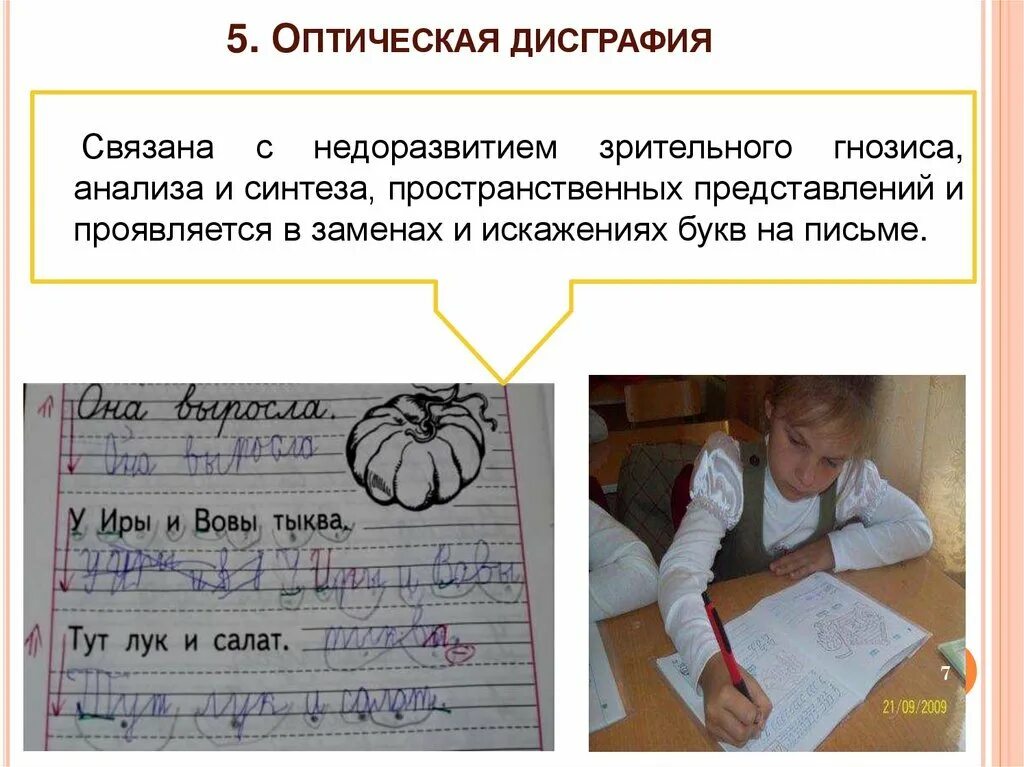 5. Оптическая дисграфия
Связана с недоразвитием зрительного гнозиса,
анализа и синтеза, пространственных представлений и
проявляется в заменах и искажениях букв на письме.
Она выросла.
Она выросла
У Иры и Вовы тыква.
У Иры и Вовы
Тут лук и салат.
тыква.
Тут лук и салат.
7
21/09/2009